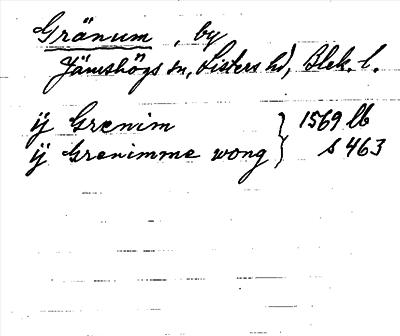 Gränum, by
Jämshögs sn, Listers hd, Blek. l.
ij Grenim } 1569 lb
ij Grenimme wong } s 463